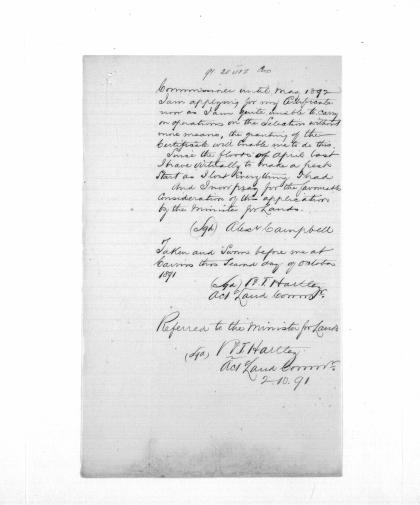 91
Commissioner until May 1892
I am applying for my Certificate
now as I am quite unable to carry
on operations on the Selection without
more means, the granting of the
Certificate will enable me to do this.
Since the floods of April last
I have virtually to make a fresh
Start as I lost everything I had
And I now pray for the favourable
Consideration of this application
by the Minister for Lands.
(Sgd) Alexr Campbell
Taken and Sworn before me at
Cairns this Second day of October
1891
(Sgd) Hartley
Act Land Commr
Referred to the Minister for Lands
(Sgd) Hartley
Act Land Commr
2.10.91